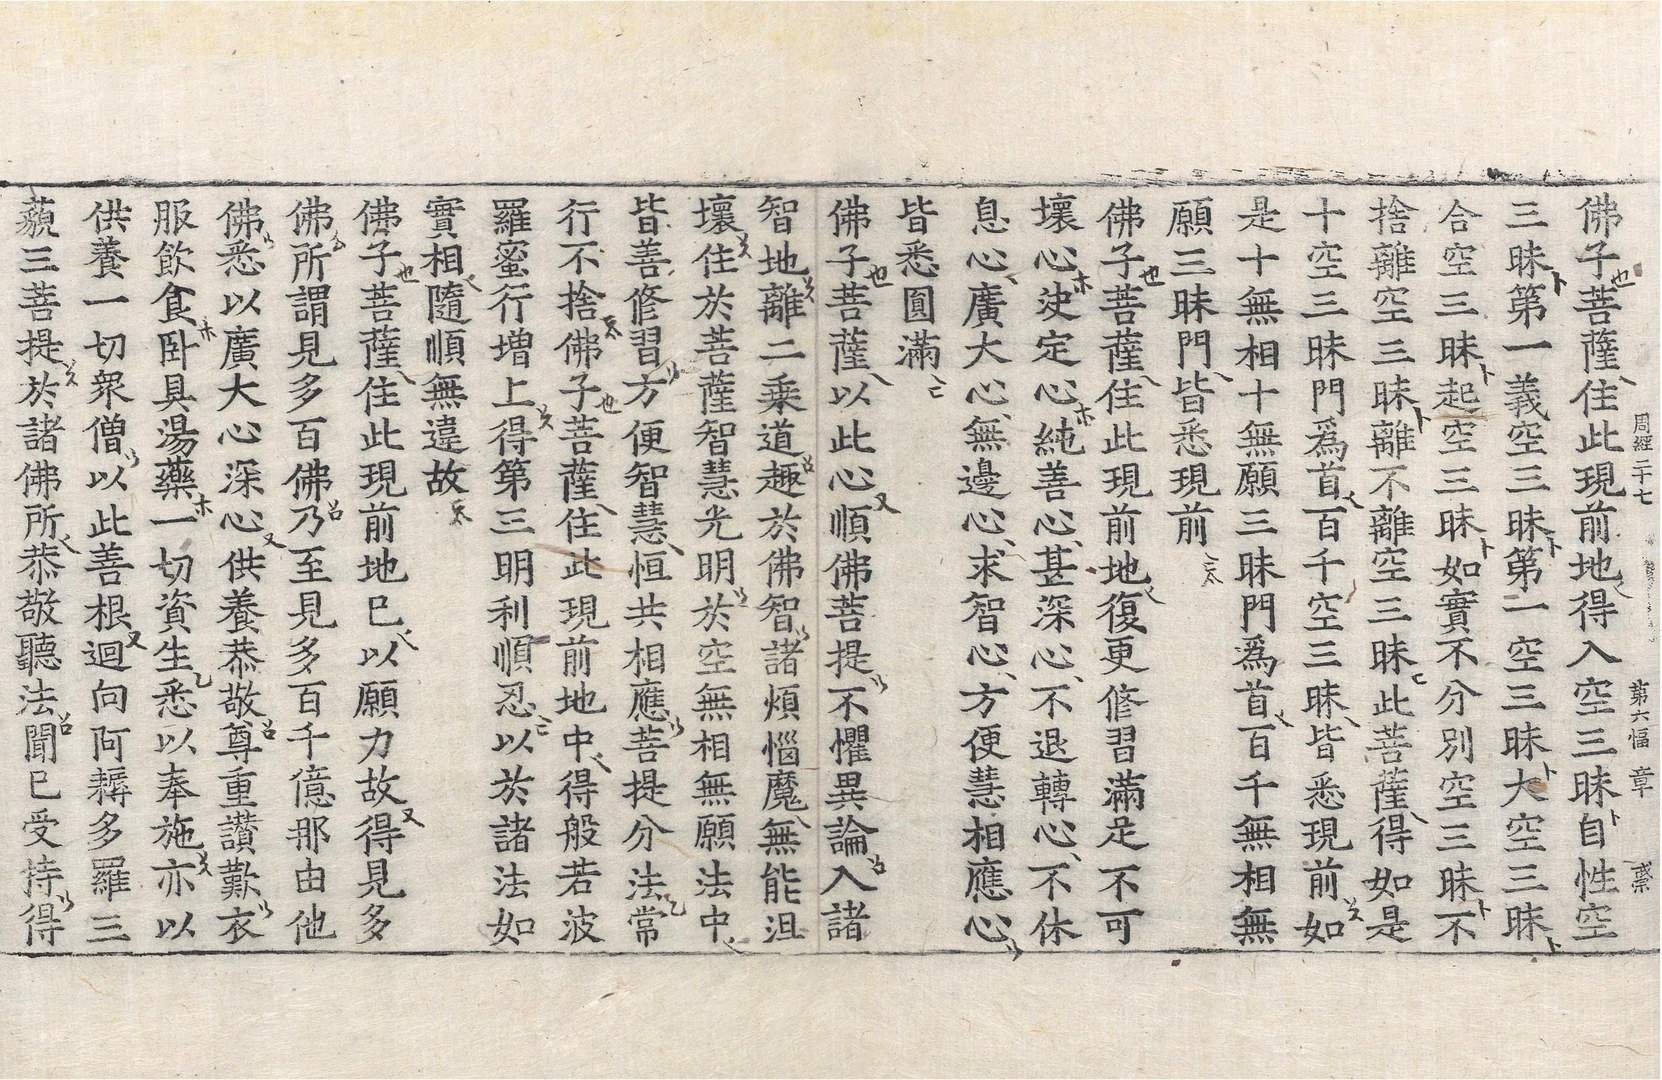 周經二十七 第六幅 章
佛子菩薩住此現前地得入空三昧自性空
三昧第一義空三昧第一空三昧大空三昧
合空三昧起空三昧如實不分別空三昧不
捨離空三昧離不離空三昧此菩薩得如是
十空三昧門爲首百千空三昧皆悉現前如
是十無相十無願三昧門爲首百千無相無
願三昧門皆悉現前
佛子菩薩住此現前地復更修習滿足不可
壞心决定心純善心甚深心不退轉心不休
息心廣大心無邊心求智心方便慧相應心
皆悉圓滿
佛子菩薩以此心順佛菩提不懼異論入諸
智地離二乘道趣於佛智諸煩惱魔無能沮
壞住於菩薩智慧光明於空無相無願法中
皆善修習方便智慧恒共相應菩提分法常
行不捨佛子菩薩住此現前地中得般若波
羅蜜行增上得第三明利順忍以於諸法如
實相隨順無違故
佛子菩薩住此現前地已以願力故得見多
佛所謂見多百佛乃至見多百千億那由他
佛悉以廣大心深心供養恭敬尊重讚歎衣
服飮食卧具湯藥一切資生悉以奉施亦以
供養一切眾僧以此善根迴向阿耨多羅三
藐三菩提於諸佛所恭敬聽法聞已受持得